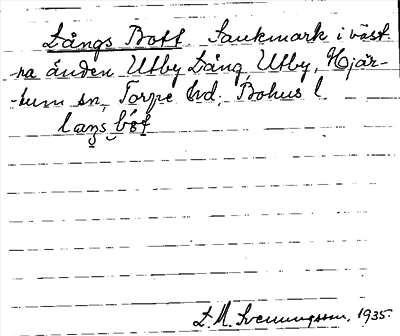 Långs Bott. Sankmark i väst-
ra änden Utby Lång, Utby, Hjär-
tum sn, Torpe hd, Bohus l.
laŋs bŏt
L. M. Svenungsson, 1935.